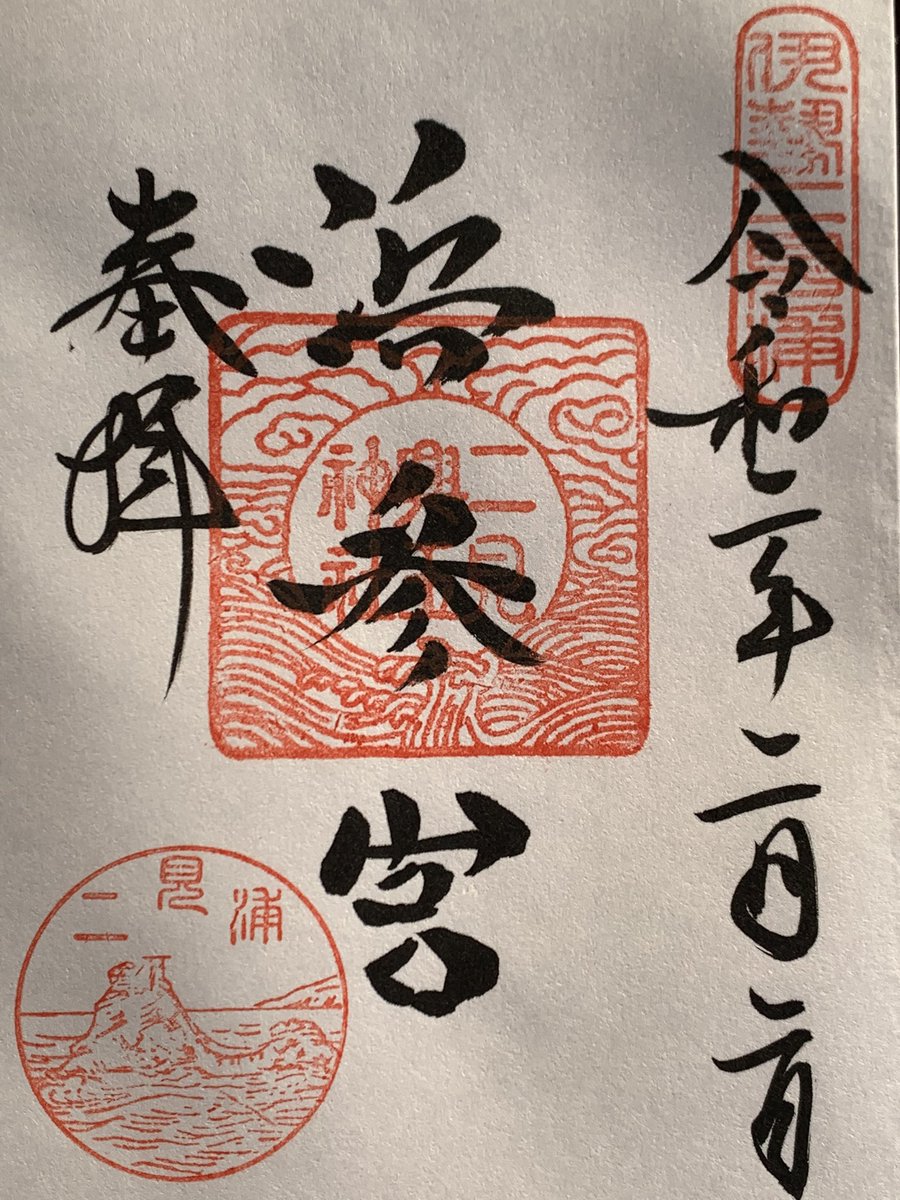 伊勢二見浦
令和二年二月二日
浜参宮
二見
興玉
神社
奉拝
二見浦